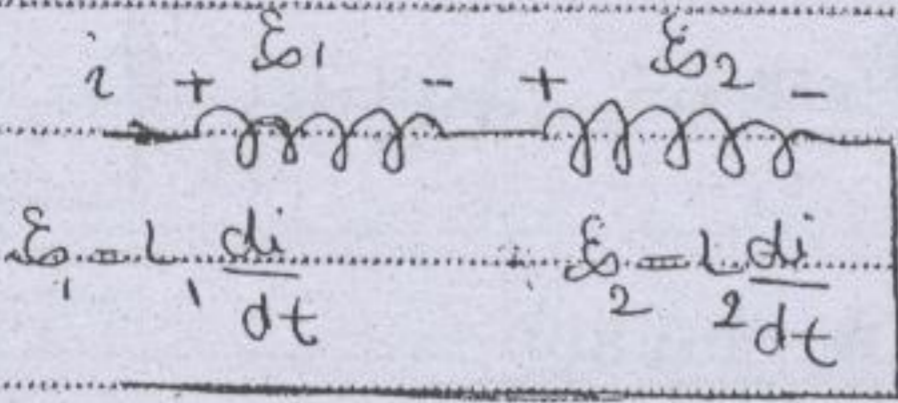 i + ℰ₁ - + ℰ₂ -
ℰ₁ = L₁ di/dt ℰ₂ = L₂ di/dt